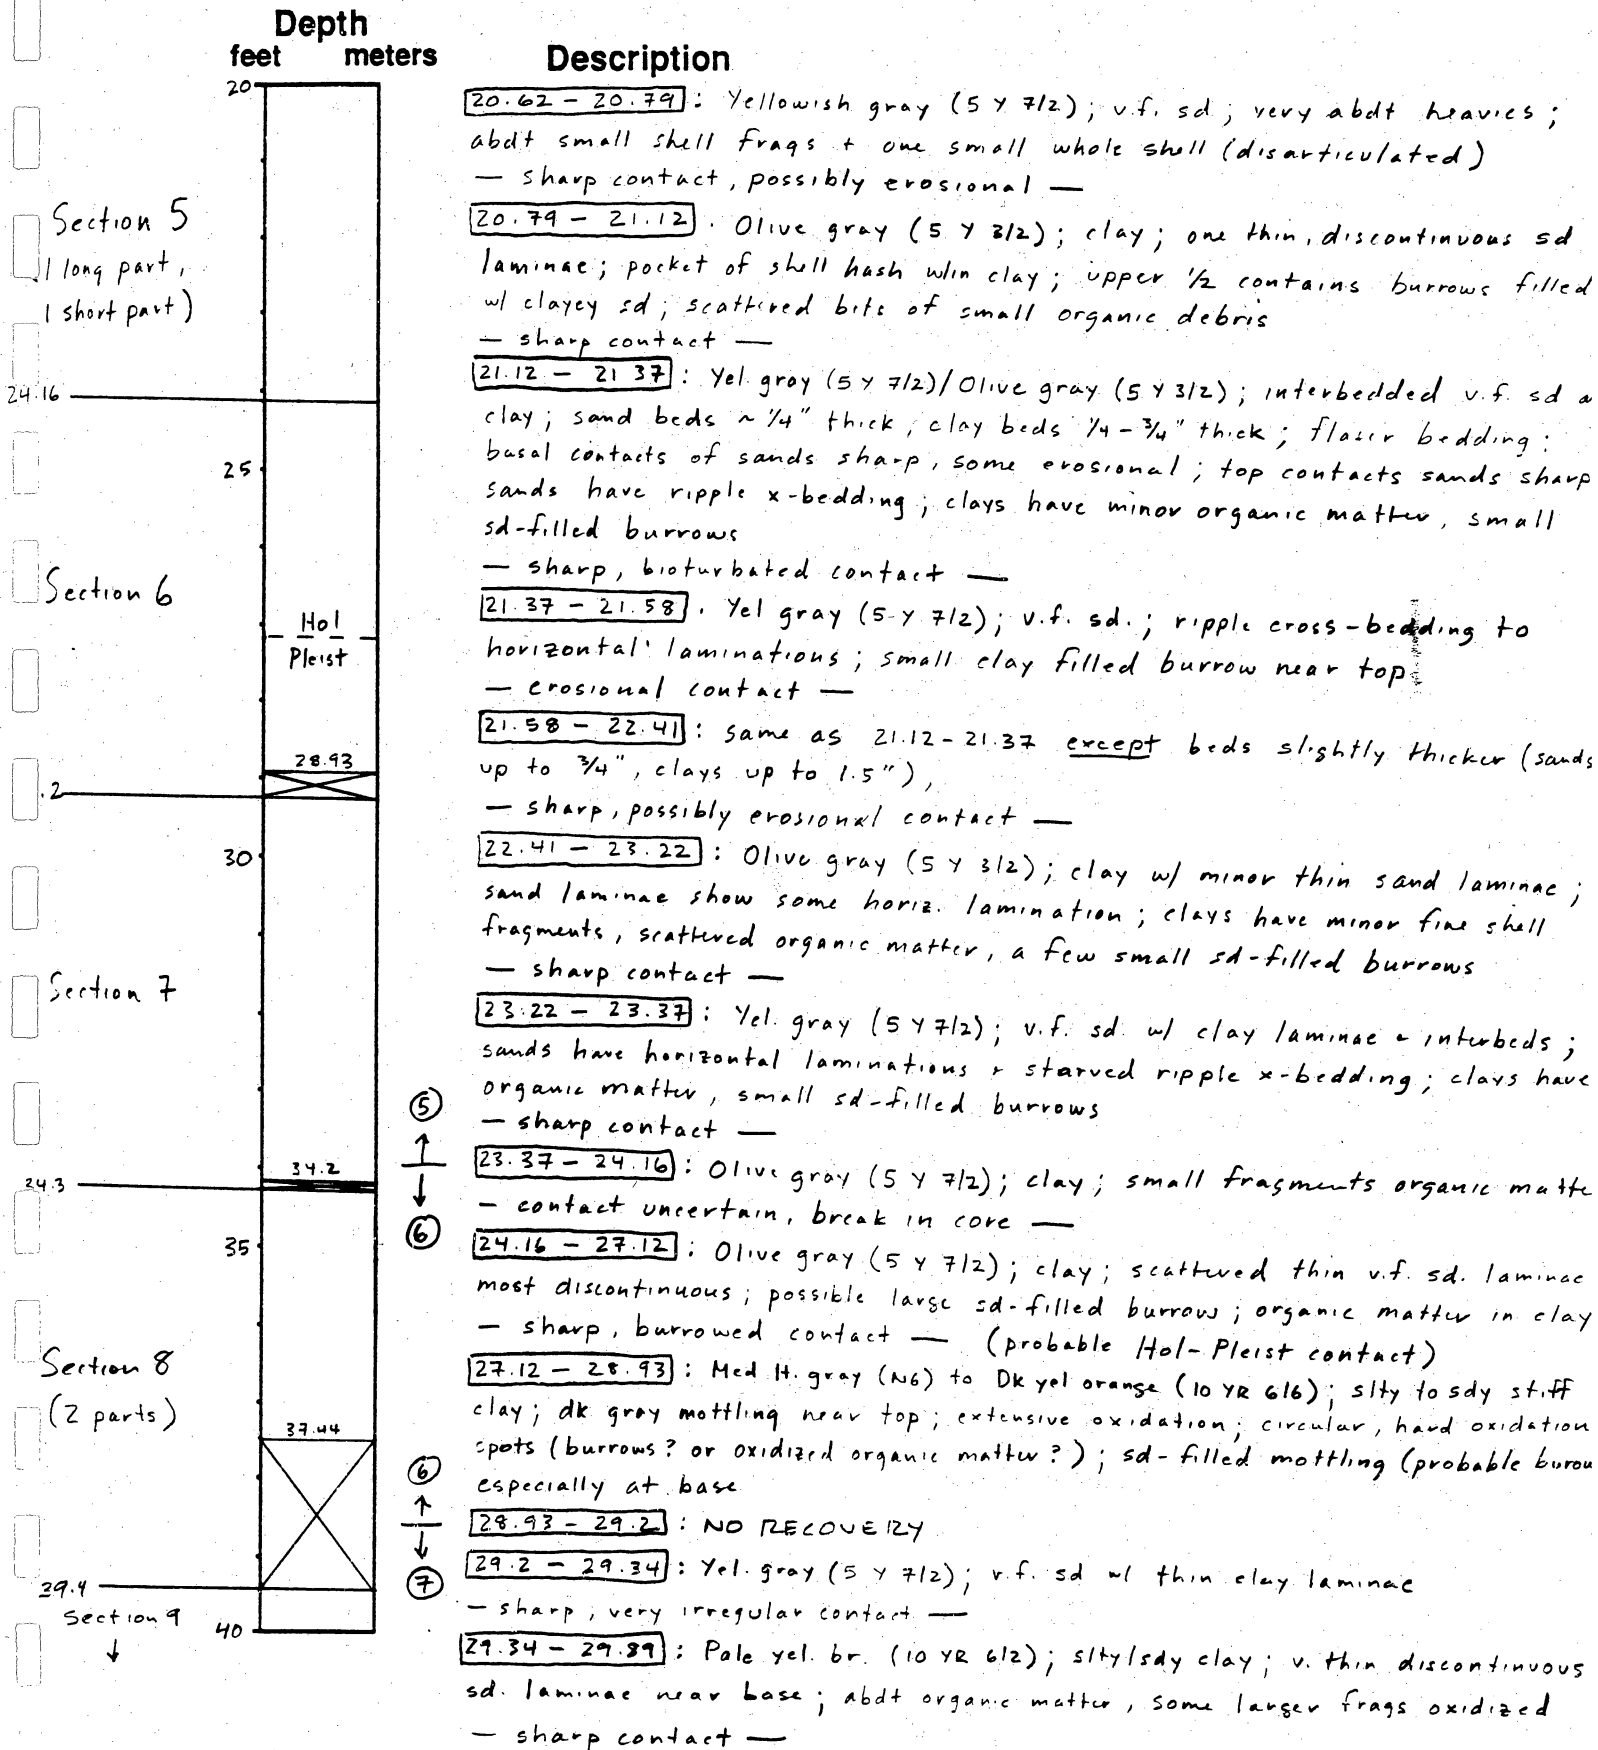 Depth
feet meters
Description
20
Section 5
1 long part,
1 short part)
24.16
25
Section 6
Hol
Pleist
28.93
.2
30
Section 7
34.2
24.3
35
Section 8
(2 parts)
37.44
39.4
Section 9
↓
40
5
↑
↓
6
6
↑
↓
7
20.62 – 20.79 : Yellowish gray (5 Y 7/2); v.f. sd; very abdt heavies;
abdt small shell frags + one small whole shell (disarticulated)
— sharp contact, possibly erosional —
20.79 – 21.12 . Olive gray (5 Y 3/2); clay; one thin, discontinuous sd
laminae; pocket of shell hash w/in clay; upper 1/2 contains burrows filled
w/ clayey sd; scattered bits of small organic debris
— sharp contact —
21.12 – 21 37 : Yel. gray (5 Y 7/2)/Olive gray (5 Y 3/2); interbedded v.f. sd
clay; sand beds ~ 1/4" thick, clay beds 1/4 – 3/4" thick; flaser bedding:
basal contacts of sands sharp, some erosional; top contacts sands sharp
sands have ripple x-bedding; clays have minor organic matter, small
sd-filled burrows
— sharp, bioturbated contact —
21.37 – 21.58 . Yel gray (5 Y 7/2); v.f. sd.; ripple cross-bedding to
horizontal laminations; small clay filled burrow near top
— erosional contact —
21.58 – 22.41 : same as 21.12-21.37 except beds slightly thicker (sands
up to 3/4", clays up to 1.5"),
— sharp, possibly erosional contact —
22.41 – 23.22 : Olive gray (5 Y 3/2); clay w/ minor thin sand laminae;
sand laminae show some horiz. lamination; clays have minor fine shell
fragments, scattered organic matter, a few small sd-filled burrows
— sharp contact —
23.22 – 23.37 : Yel. gray (5 Y 7/2); v.f. sd. w/ clay laminae + interbeds;
sands have horizontal laminations + starved ripple x-bedding; clays have
organic matter, small sd-filled burrows
— sharp contact —
23.37 – 24.16 : Olive gray (5 Y 7/2); clay; small fragments organic matte
— contact uncertain, break in core —
24.16 – 27.12 : Olive gray (5 Y 7/2); clay; scattered thin v.f. sd. laminae
most discontinuous; possible large sd-filled burrow; organic matter in clay
— sharp, burrowed contact — (probable Hol-Pleist contact)
27.12 – 28.93 : Med lt. gray (N6) to Dk yel orange (10 YR 6/6); slty to sdy stiff
clay; dk gray mottling near top; extensive oxidation; circular, hard oxidation
spots (burrows? or oxidized organic matter?); sd-filled mottling (probable burou
especially at base
28.93 – 29.2 : NO RECOVERY
29.2 – 29.34 : Yel. gray (5 Y 7/2); v.f. sd w/ thin clay laminae
— sharp, very irregular contact —
29.34 – 29.89 : Pale yel. br. (10 YR 6/2); slty/sdy clay; v. thin discontinuous
sd. laminae near base; abdt organic matter, some larger frags oxidized
— sharp contact —